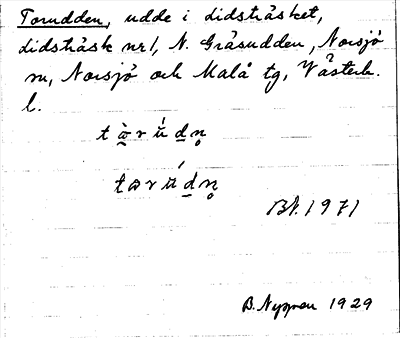 Torudden, udde i Lidsträsket,
Lidsträsk nr 1, N. Gräsudden, Norsjö
sn, Norsjö och Malå tg, Västerb.
l.
BN. 1971
B. Nygren 1929